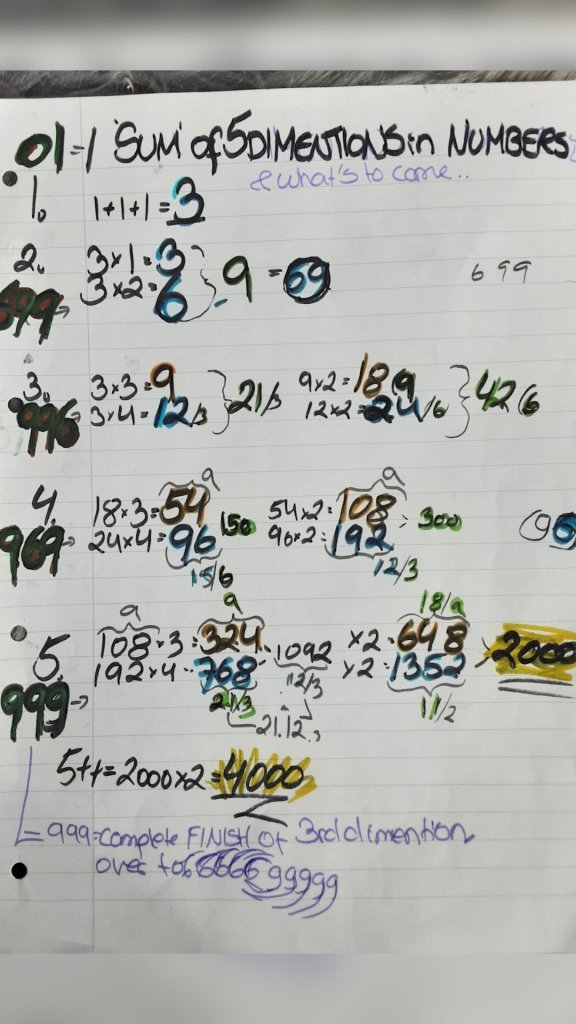 01=1 'SUM' of 5 DIMENTIONS in NUMBERS
& what's to come..
1. 1+1+1=3
2. 3×1=3
3×2=6 } 9 = 69
6 99
699→
3. 3×3=9 } 21/3 9×2=18(9 } 42(6
996→ 3×4=12/3 12×2=24/6
9 9
4. 18×3=54 150 54×2=108 > 300
969→ 24×4=96 96×2=192 (96
15/6 12/3
9 9 18/9
5. 108×3=324 1092 ×2=648 > 2000
192×4=768 12/3 ×2=1352
999→ 21/3 11/2
21.12.3
5++=2000×2=4000
=999=complete FINISH Of 3rd dimention
over to 6666699999